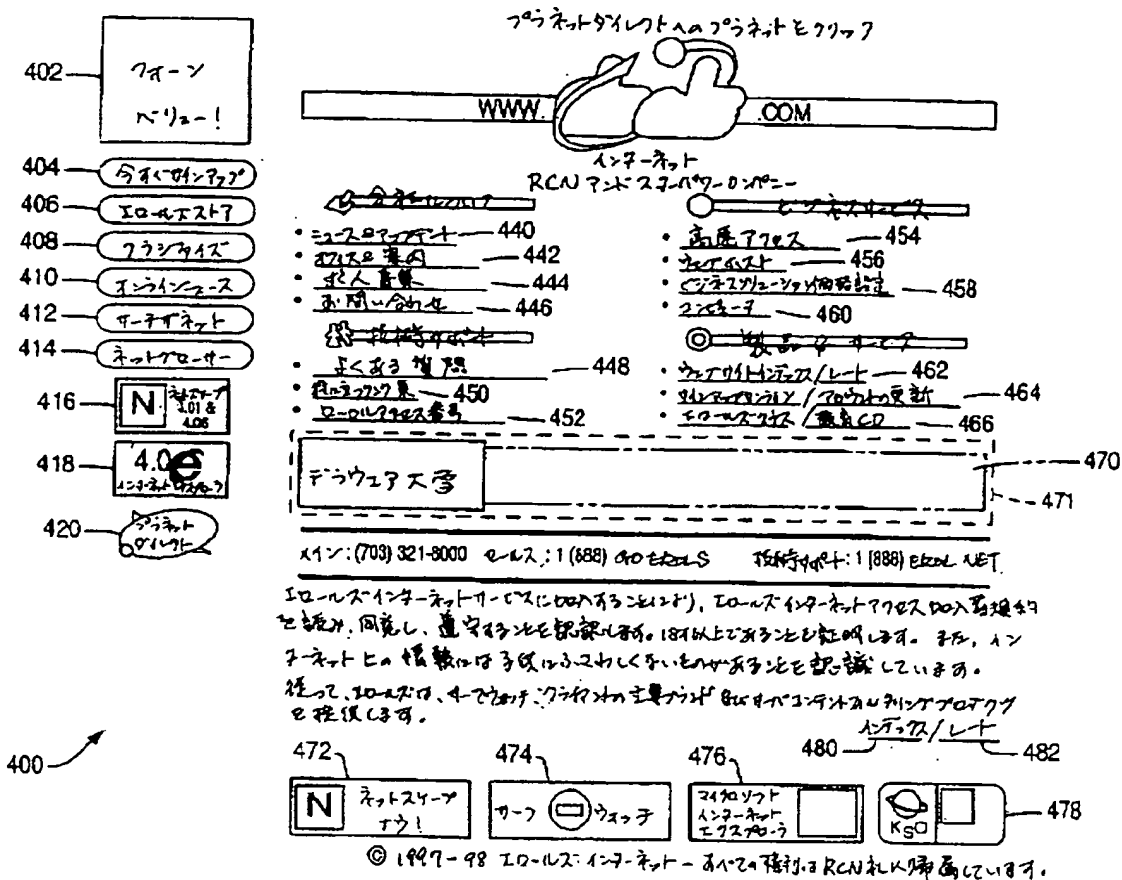 プラネットダイレクトへのプラネットをクリック
402
クォーン
バリュー!
WWW. .COM
インターネット
RCN アンド スターパワーカンパニー
404 今すぐサインアップ
406 エロールズストア
408 クラシファイズ
410 オンラインニュース
412 サーチザネット
414 ネットグローサー
416 N ネットスケープ 4.01 & 4.06
418 4.0 e インターネットエクスプローラ
420 プラネット ダイレクト
会社
・ニュース&アップデート 440
・オフィス& 案内 442
・求人募集 444
・お問い合わせ 446
技術サポート
・よくある質問 448
・リンク集 450
・ローカルアクセス番号 452
ビジネスサービス
・高速アクセス 454
・ウェブホスト 456
・ビジネスソリューション価格設定 458
・ 460
製品&サービス
・ウェブサイトインデックス/レート 462
・サインアップオンライン/アカウントの更新 464
・エロールズクラス/ CD 466
デラウェア大雪
470
471
メイン:(703) 321-8000 セールス:1 (888) GO EROLS 技術サポート:1 (888) EROL NET
エロールズインターネットサービスに加入することにより、エロールズインターネットアクセス加入者規約
を読み、同意し、遵守することを認識します。18才以上であることを証明します。また、イン
ターネット上の情報には子供にふさわしくないものがあることを認識しています。
従って、エロールズは、サーフウォッチ、クライアントの主要ブランド コンテント プロダクツ
を提供します。
インデックス/レート
480 482
400
472
N ネットスケープ
ナウ!
474
サーフ ウォッチ
476
マイクロソフト
インターネット
エクスプローラ
KSO
478
© 1997-98 エロールズ インターネット - すべての権利はRCN社に帰属しています。